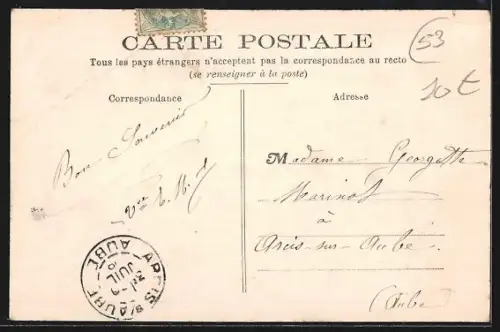 CARTE POSTALE
Tous les pays étrangers n'acceptent pas la correspondance au recto
(se renseigner à la poste)
Correspondance
Adresse
53
Bon Souvenir
Madame Georgette
Marinot
à
Arcis-sur-Aube
(Aube
ARCIS-S-AUBE
AUBE
JUIL